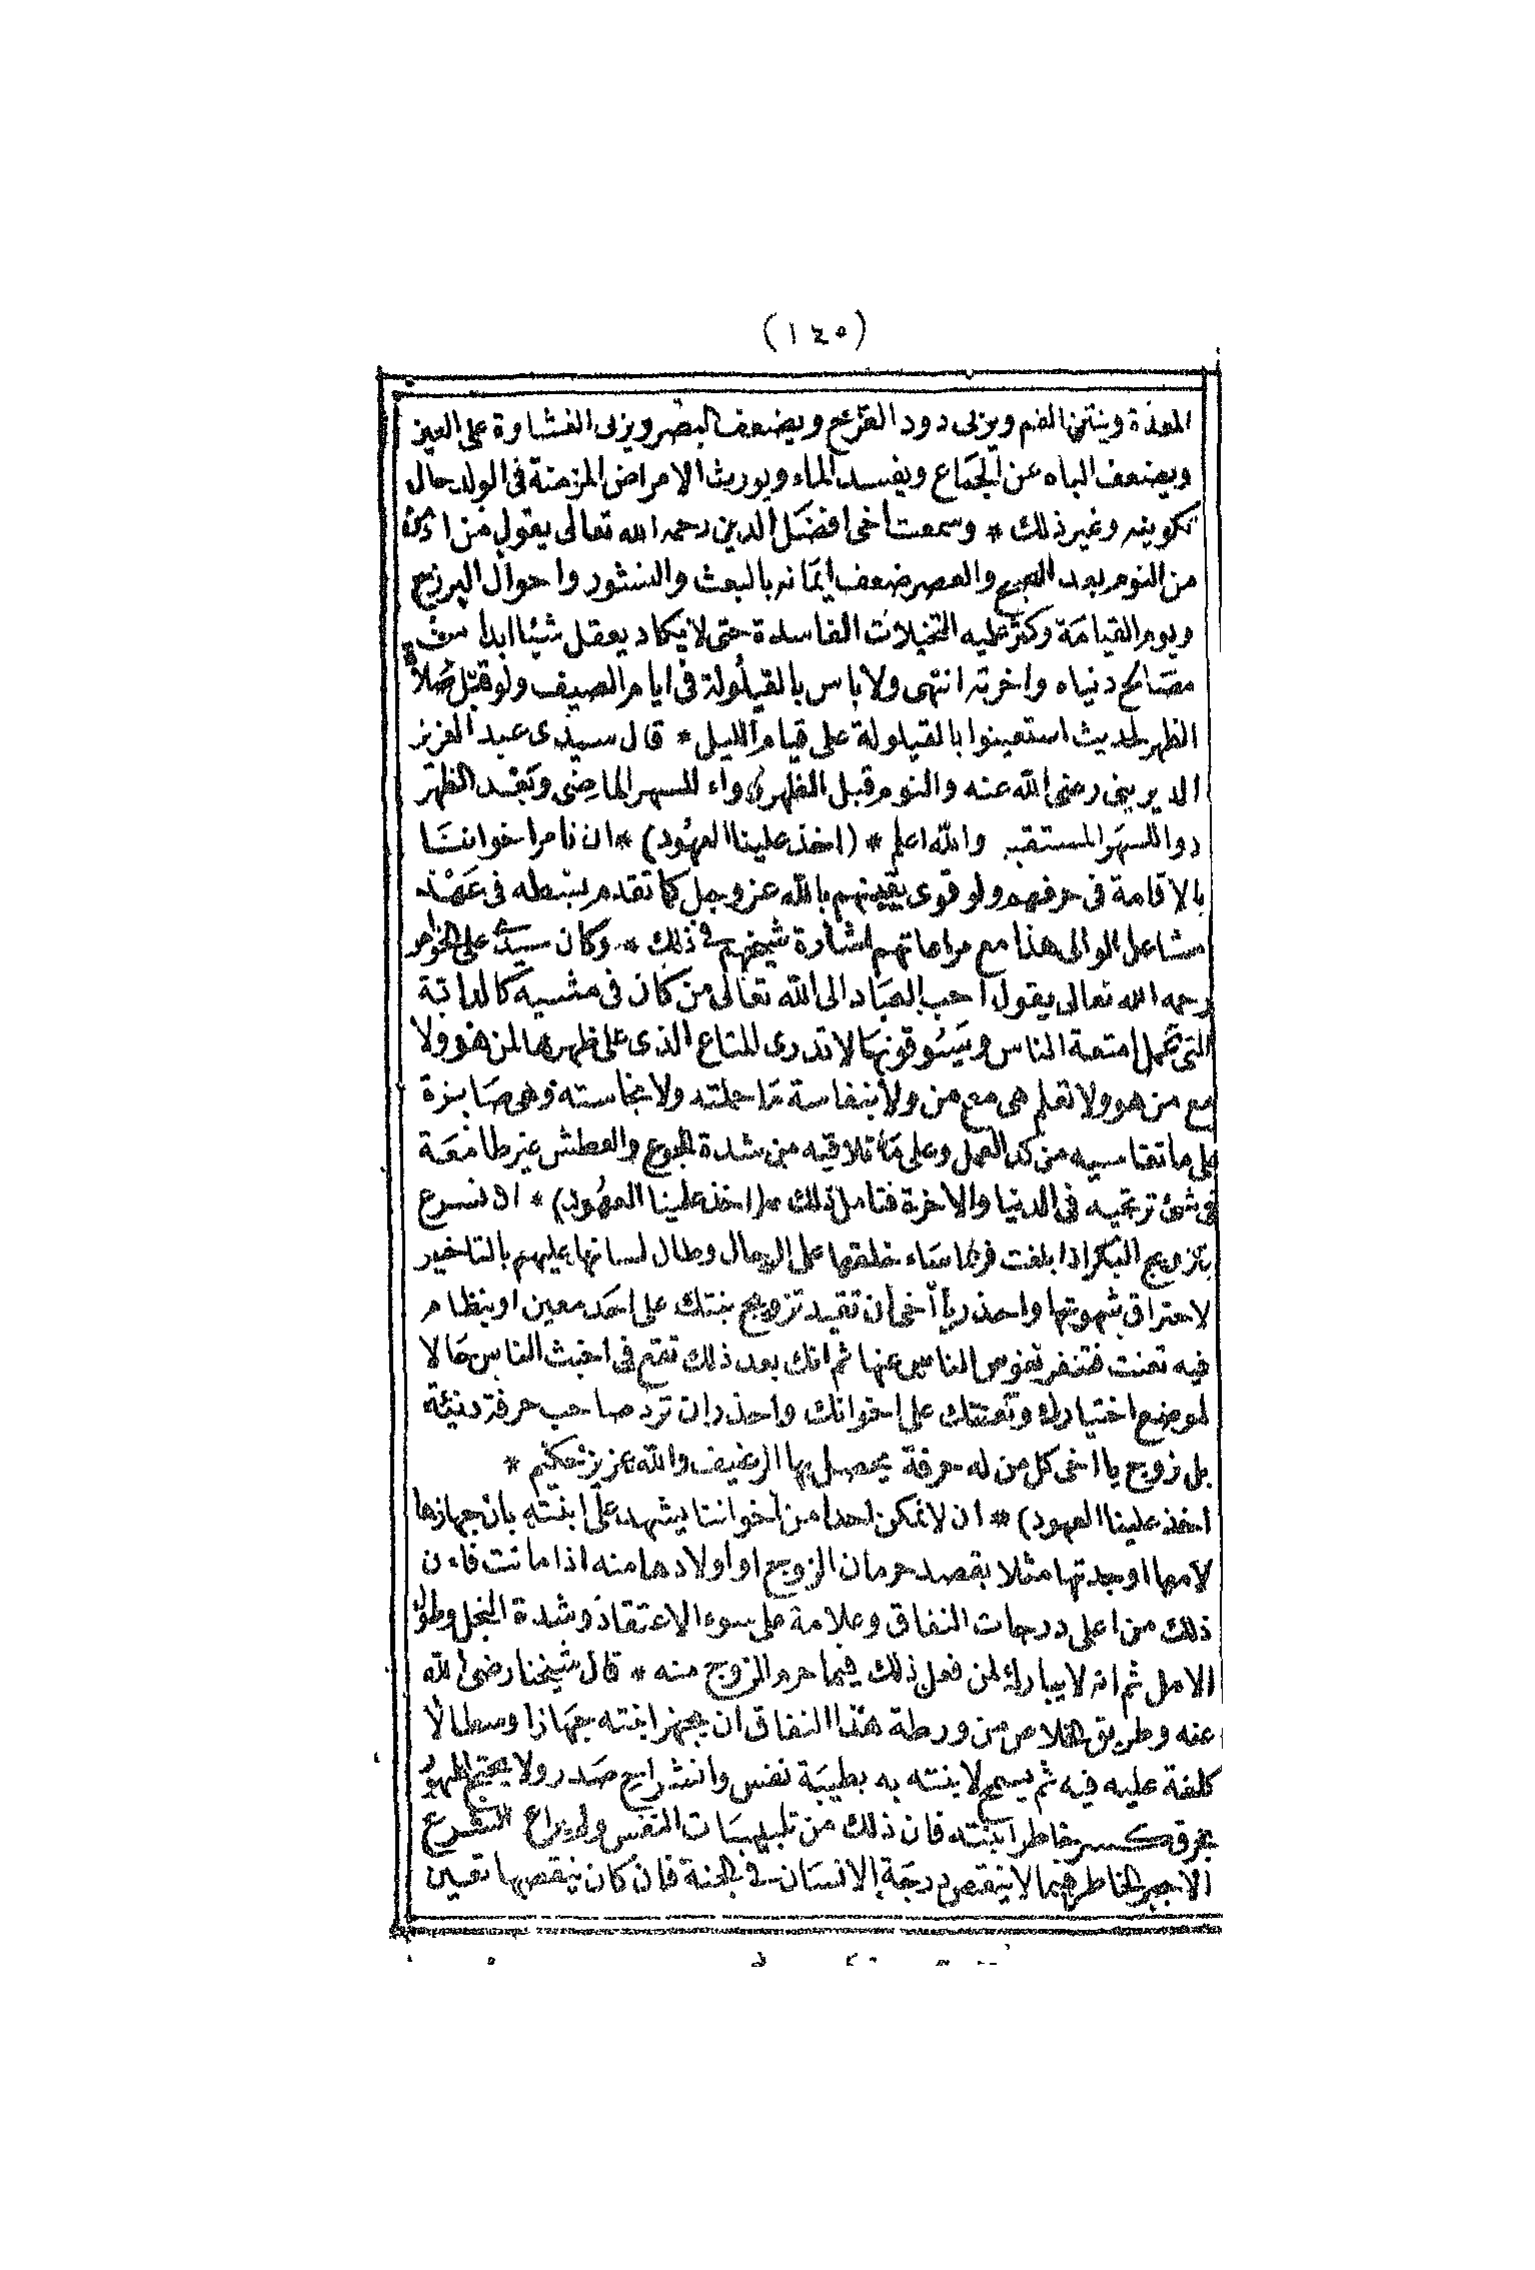 (١٤٥)
المعدة وينتن الفم ويربى دود القرح ويضعف البصر ويربى الغشاوة على العين
ويضعف الباه عن الجماع ويفسد الماء ويورث الامراض المزمنة فى الولد حال
تكوينه وغير ذلك * وسمعت اخى افضل الدين رحمه الله تعالى يقول من اكثر
من النوم بعد الصبح والعصر ضعف ايمانه بالبعث والنشور واحوال البرزخ
ويوم القيامة وكثر عليه التخيلات الفاسدة حتى لا يكاد يعقل شيئا ابدا من
مصالح دنياه واخرته انتهى ولا باس بالقيلولة فى ايام الصيف ولو قبل صلاة
الظهر لحديث استعينوا بالقيلولة على قيام الليل * قال سيدى عبد العزيز
الديرينى رضى الله عنه والنوم قبل الظهر دواء للسهر الماضى وبعد الظهر
دوا للسهر المستقبل والله اعلم * (اخذ علينا العهود) * ان نامر اخواننا
بالاقامة فى حرفهم ولو قوى يقينهم بالله عز وجل كما تقدم بسطه فى عهد
مشاعل الوالى هذا مع مراعاتهم اشارة شيخهم فى ذلك * وكان سيدى على الخواص
رحمه الله تعالى يقول احب العباد الى الله تعالى من كان فى مشيه كالدابة
التى تحمل امتعة الناس ويسوقونها لا تدرى المتاع الذى على ظهرها لمن هو ولا
مع من هو ولا تعلم هى مع من ولا بنفاسة ما حملته ولا بخاسته وهى صابرة
على ما تقاسيه من كد العمل وعلى ما تلاقيه من شدة الجوع والعطش غير طامعة
فى شئ ترتجيه فى الدنيا والاخرة فتامل ذلك * (اخذ علينا العهود) * ان نسرع
بتزويج البكر اذا بلغت فربما ساء خلقها على الرجال وطال لسانها عليهم بالتاخير
لاحتراق شهوتها واحذر يا اخى ان تقيد تزويج بنتك على احد معين او بنظام
فيه تعنت فتنفر نفوس الناس عنها ثم انك بعد ذلك تقع فى اخبث الناس حالا
لموضع اختيارك وتعنتك على اخوانك واحذر ان ترد صاحب حرفة دنيئة
بل زوج يا اخى كل من له حرفة يحصل بها الرغيف والله عزيز حكيم *
اخذ علينا العهود) * ان لا نمكن احدا من اخواننا يشهد على ابنته بان جهازها
لامها او جدتها مثلا بقصد حرمان الزوج او اولادها منه اذا ماتت فان
ذلك من اعلى درجات النفاق وعلامة على سوء الاعتقاد وشدة البخل وطول
الامل ثم انه لا يبارك لمن فعل ذلك فيما حرم الزوج منه * قال شيخنا رضى الله
عنه وطريق الخلاص من ورطة هذا النفاق ان يجهز ابنته جهازا وسطا لا
كلفة عليه فيه ثم يسمح لابنته به بطيبة نفس وانشراح صدر ولا يحتج
بخوف كسر خاطر ابنته فان ذلك من تلبيسات النفس ولم يراع الشرع
الا جبر الخاطر فيما لا ينقص درجة الانسان فى الجنة فان كان ينقصها تعين